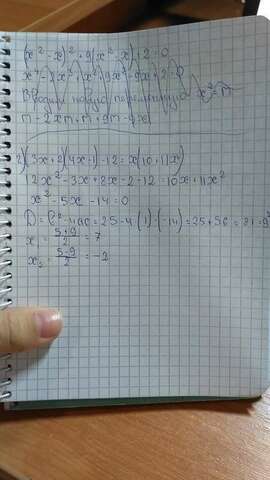 (x² - x)² + 9(x² - x) + 2 = 0
x⁴ - 2x² + x² + 9x² - 9x + 2 = 0
Вводим новую переменную x² = m
m - 2xm + m + 9m - 9x
2) (3x+2)(4x-1) - 12 = x(10+11x)
12x² - 3x + 8x - 2 - 12 = 10x + 11x²
x² - 5x - 14 = 0
D = b² - 4ac = 25 - 4·(1)·(-14) = 25 + 56 = 81 = 9²
x₁ = (5+9)/2 = 7
x₂ = (5-9)/2 = -2